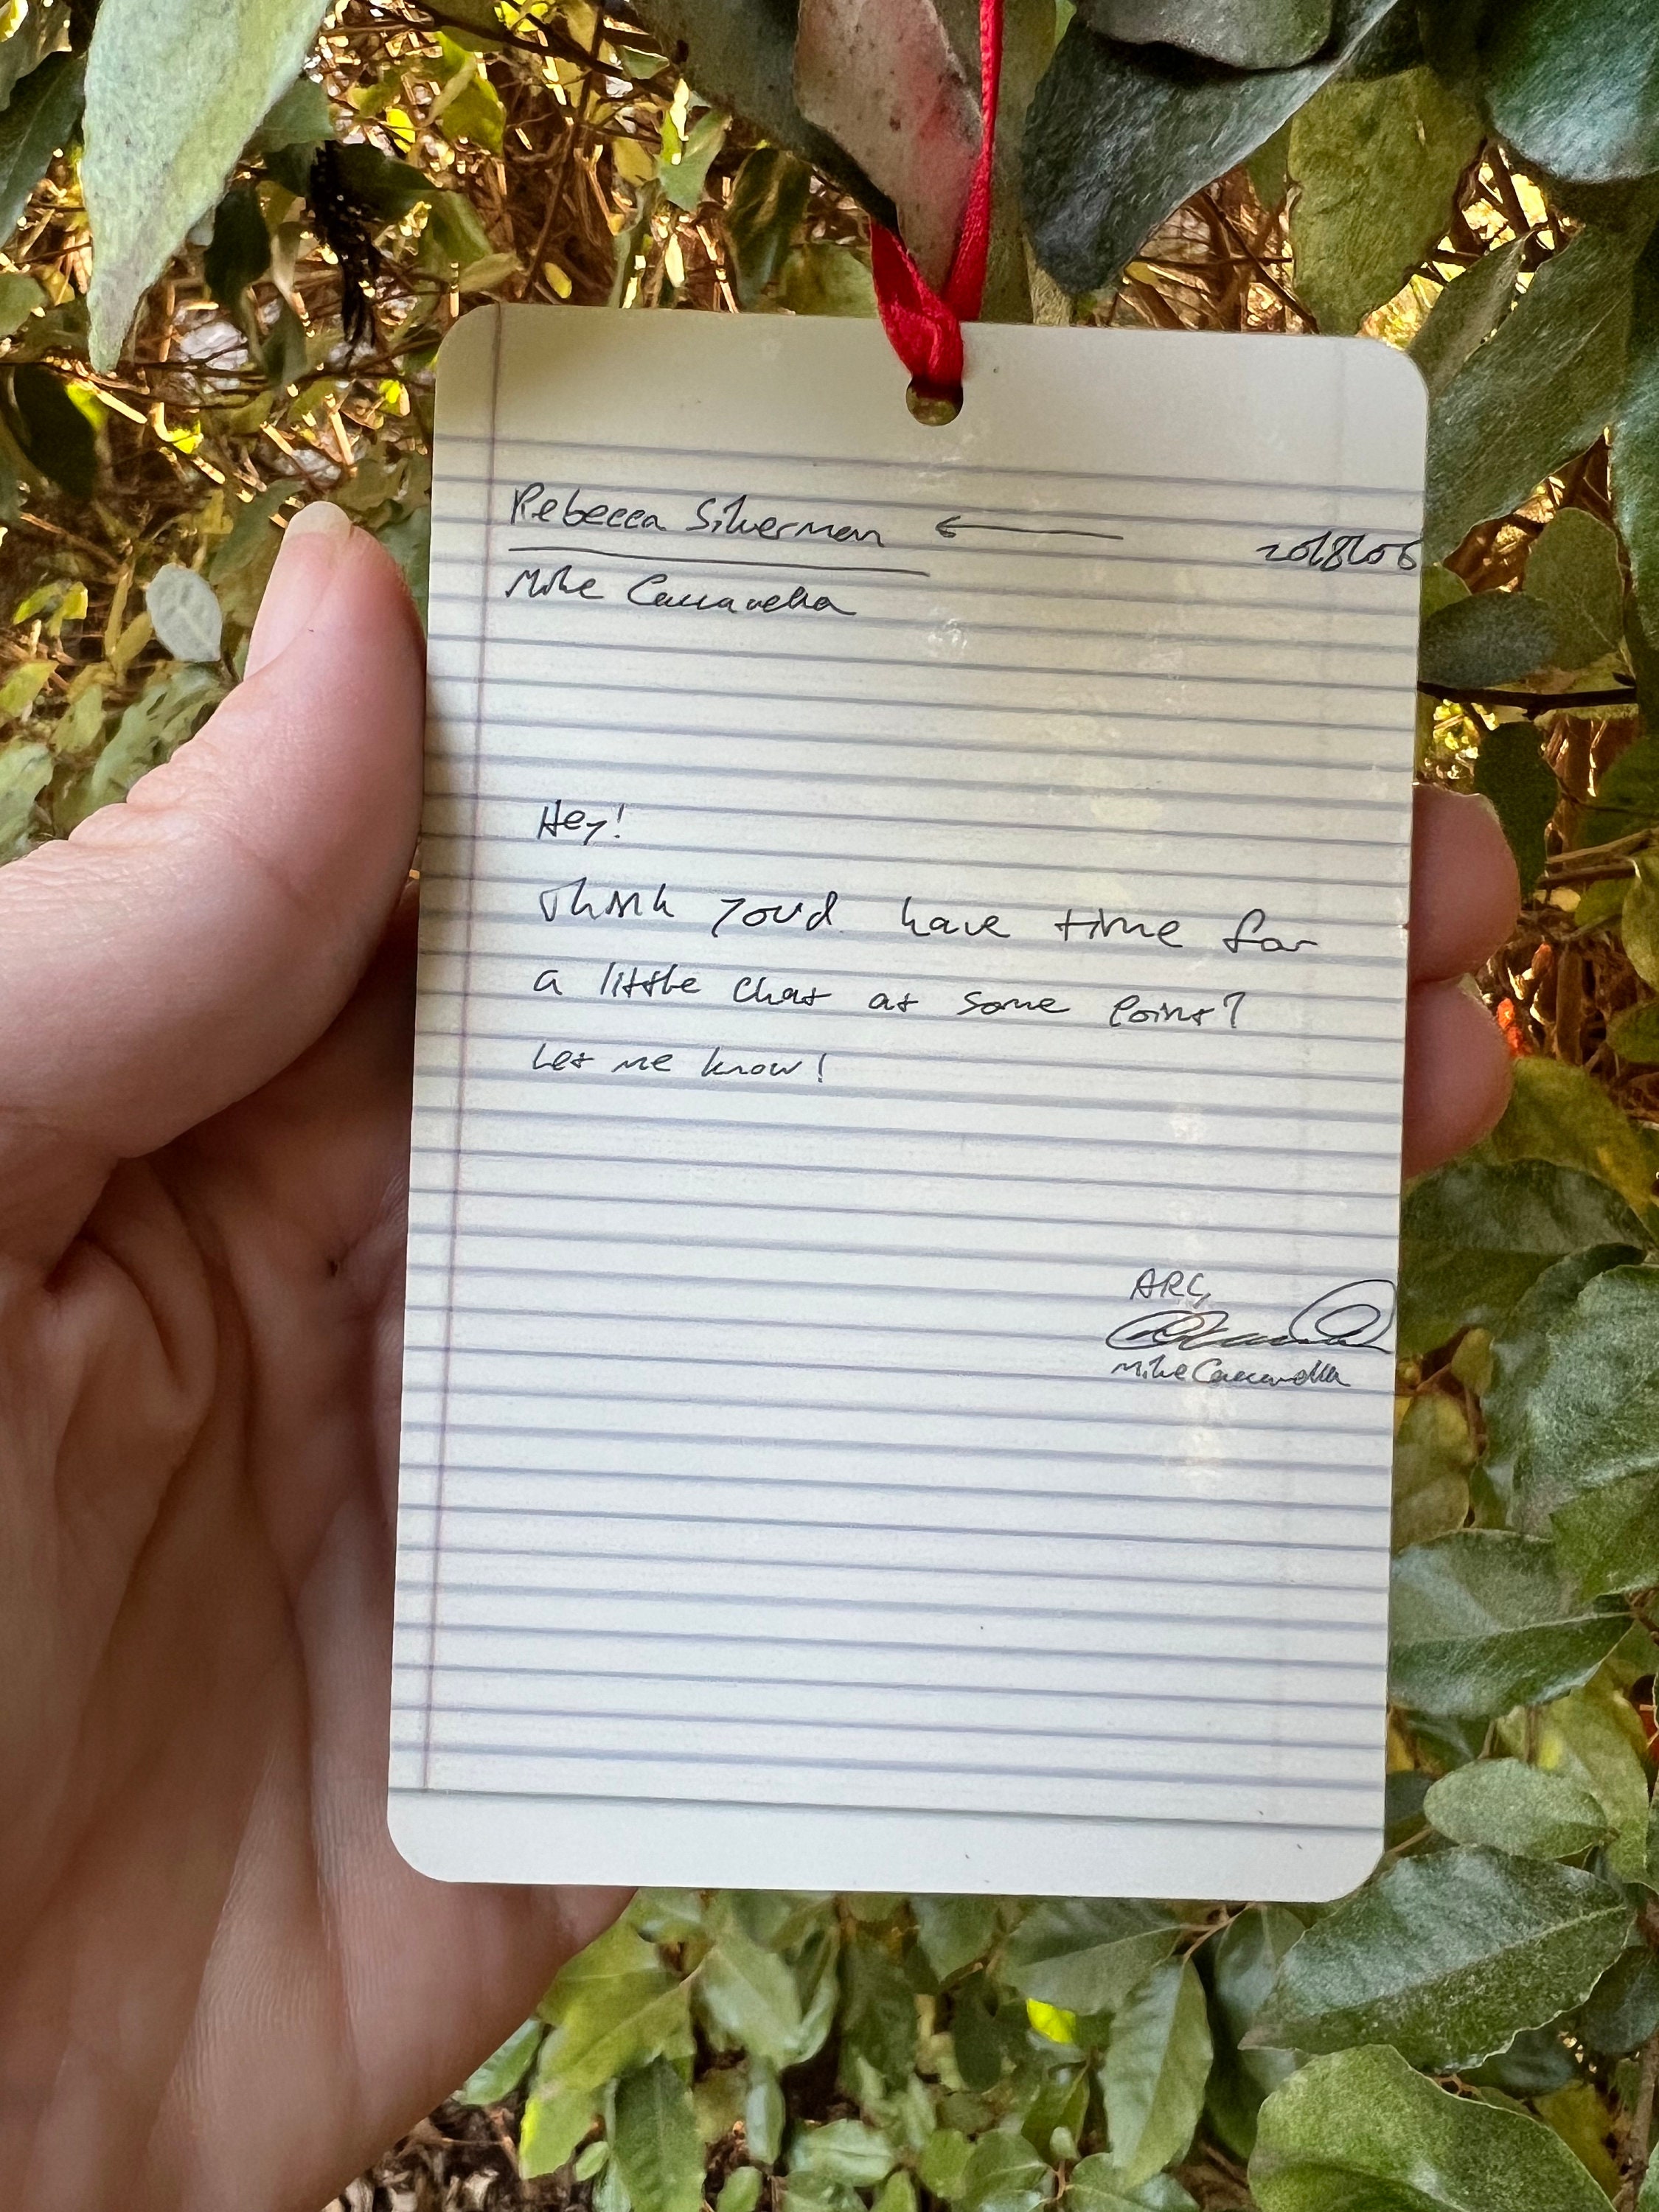 Rebecca Silverman ←
20/8/06
Mike Caccavella
Hey!
Think you'd have time for
a little chat at some point?
Let me know!
ARC,
Mike Caccavella